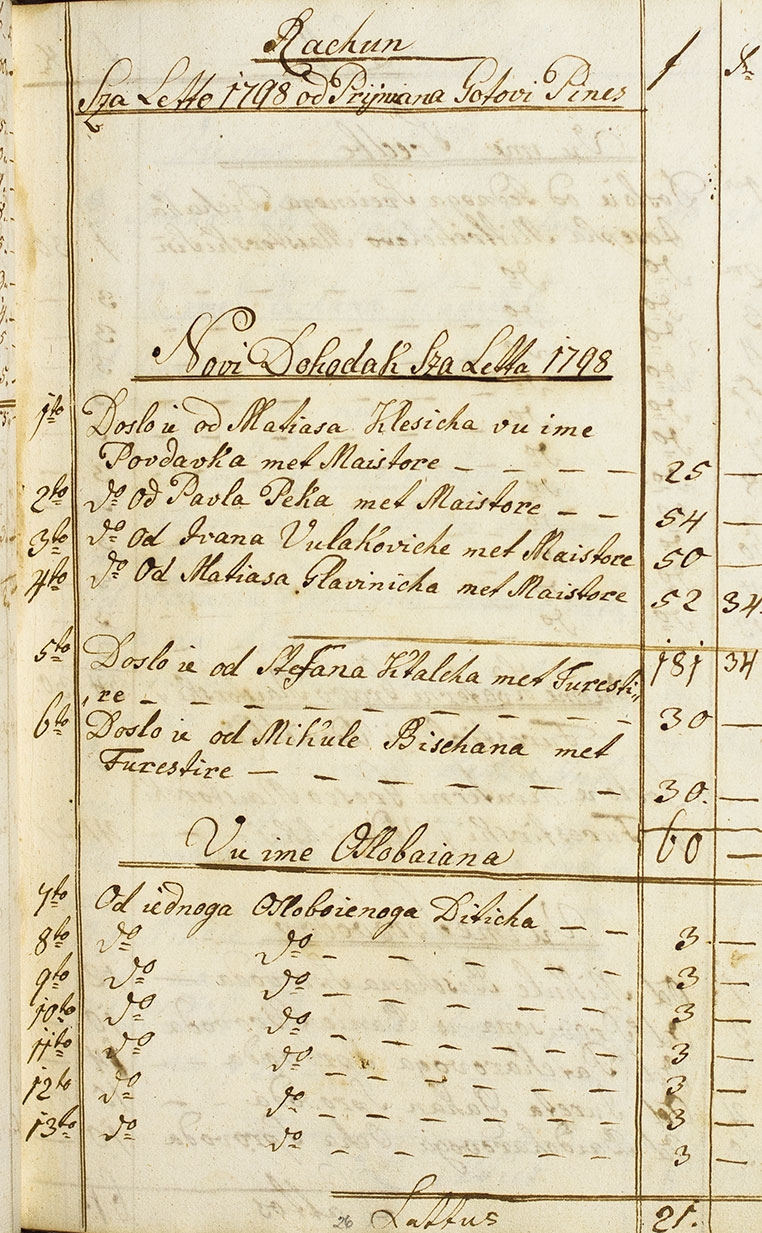 Rachun
f x
Sza Letto 1798 od Prijmana Gotovi Pinez
Novi Dohodak Sza Letta 1798
1to Doslo ie od Matiasa Klesicha vu ime
Povdavka met Maistore – – – – 25 –
2to do od Pavla Peka met Maistore – – 54 –
3to do Od Ivana Vulakoviche met Maistore 50 –
4to do Od Matiasa Glavinicha met Maistore 52 34
181 34
5to Doslo ie od Stefana Ktalcha met Furesti„
„re – – – – – – – – 30 –
6to Doslo ie od Mikule Bisehana met
Furestire – – – – – – 30. –
60 –
Vu ime Oslobaiana
7to Od iednoga Osloboienoga Diticha – – 3 –
8to do do – – – – – 3 –
9to do do – – – – – 3 –
10to do do – – – – – 3 –
11to do do – – – – – 3 –
12to do do – – – – – 3 –
13to do do – – – – – 3 –
26 Lattus 21.